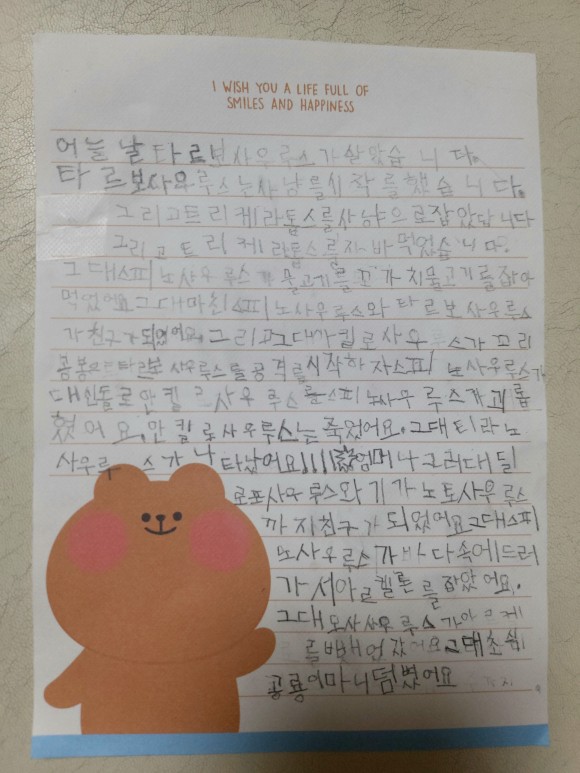 I WISH YOU A LIFE FULL OF
SMILES AND HAPPINESS
어늘날타르보사우루스가살았습니다.
타르보사우루스는사냥을시작을했습니다.
그리고트리케라톱스를사냥으로잡았답니다
그리고트리케라톱스를자바먹었습니다.
그대스피노사우루스가물고기를 치물고기를잡아
먹었어요그대마친스피노사우루스와타르보사우루스
가친구가되었어요,그리고그대가킬로사우루스가꼬리
곰봉으로타르보사우루스를공격을시작하자스피노사우루스가
대인돌로안킬로사우루스를스피노사우루스가괴롭
혔어요.안킬로사우루스는죽었어요.그대티라노
사우루스가나타났어요!!!!엄머나그러대딜
로포사우루스와기가노토사우루스
까지친구가되었어요그대스피
노사우루스가바다속에드러
가서아르켈론를잡았어요.
그대모사사우루스가아르케
를빼 어요그대초식
공룡이마니덤볐어요